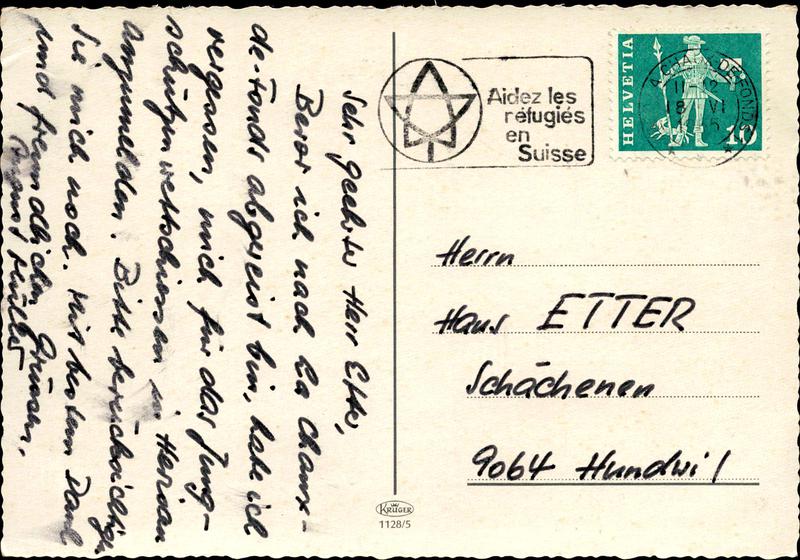 Sehr geehrter Herr Etter,
Bevor ich nach La Chaux-
de-Fonds abgereist bin, habe ich
vergessen, mich für das Jung-
schützenwettschiessen in Herisau
anzumelden. Bitte berücksichtigen
Sie mich noch. Mit bestem Dank
und freundlichen Grüssen,
Müller
Aidez les
réfugiés
en
Suisse
HELVETIA
10
LA CHAUX-DE-FONDS
Herrn
Hans ETTER
Schächenen
9064 Hundwil
KRÜGER
1128/5